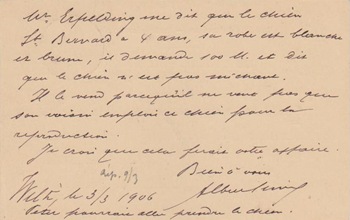 Mr. Erpelding me dit que le chien
St. Bernard a 4 ans, sa robe est blanche
et brun, il demande 100 M. et dit
que le chien n'est pas méchant.
Il le vend parcequ'il ne veut pas que
son voisin emploie ce chien pour la
reproduction.
Je crois que cela ferait votre affaire.
Bien à vous
rép. 9/3
Albert
le 3/3 1906
Peter pourrait aller prendre le chien